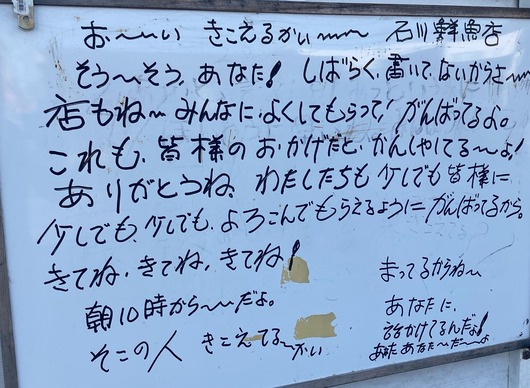 お〜〜い きこえるかい〜〜 石川鮮魚店
そう〜そう、あなた! しばらく、書いて、ないからさ〜〜
店もね〜みんなに、よくしてもらって! がんばってるよ。
これも、皆様のおかげだと、かんしゃしてる〜よ!
ありがとうね、わたしたちも少しでも皆様に
少しでも、少しでも、よろこんでもらえるようにがんばってるから。
きてね、きてね、きてね!
まってるからね〜
朝10時から〜〜だよ。
あなたに、
話かけてるんだよ!
そこの人 きこえてる〜かい
あなた、あなた〜だ〜よ